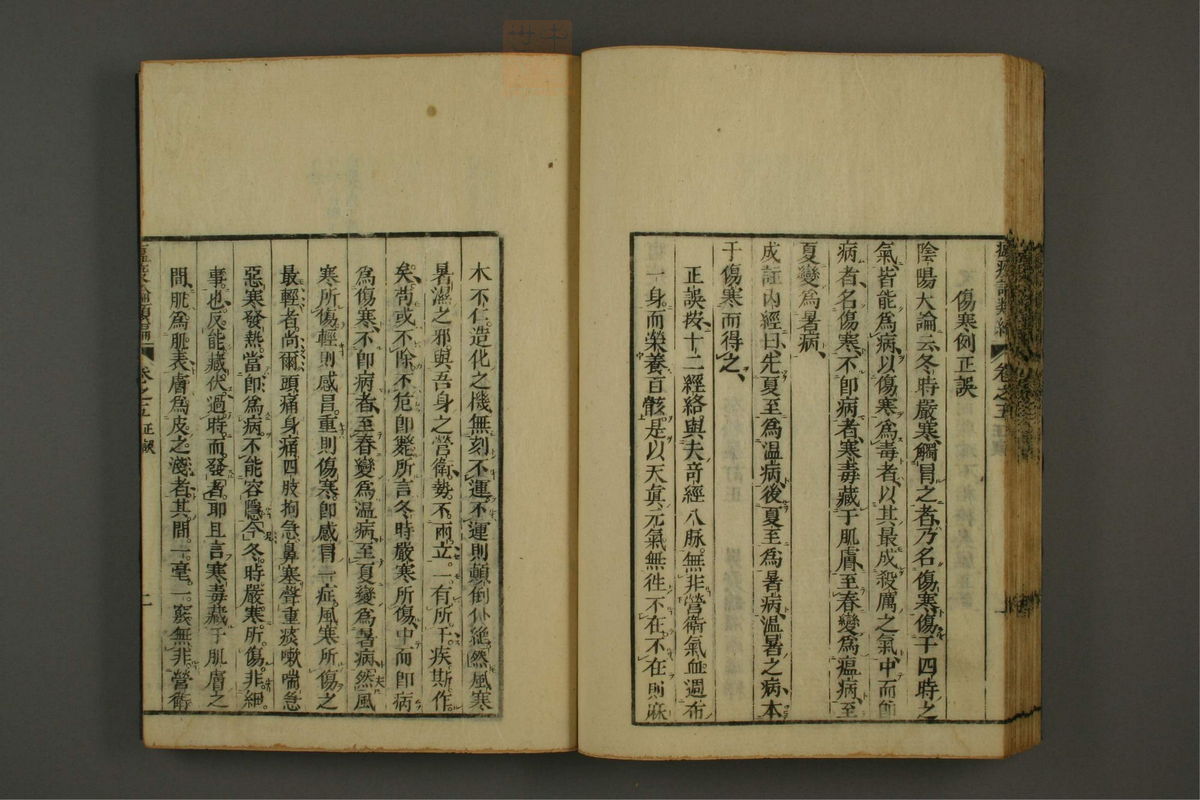 瘟疫論類編 卷之五 正誤
傷寒例正誤
陰陽大論云冬時嚴寒觸冒之者乃名傷寒傷于四時之
氣皆能爲病以傷寒爲毒者以其最成殺厲之氣中而卽
病者名傷寒不卽病者寒毒藏于肌膚至春變爲瘟病至
夏變爲暑病
成註內經曰先夏至爲溫病後夏至爲暑病溫暑之病本
于傷寒而得之
正誤按十二經絡與夫奇經八脉無非營衛氣血週布
一身而榮養百骸是以天眞元氣無徃不在不在則麻
木不仁造化之機無刻不運不運則顚倒仆絶然風寒
暑濕之邪與吾身之營衛勢不兩立一有所干疾斯作
矣苟或不除不危卽斃所言冬時嚴寒所傷中而卽病
爲傷寒不卽病者至春變爲溫病至夏變爲暑病然風
寒所傷輕則感冒重則傷寒卽感冒一症風寒所傷之
最輕者尚爾頭痛身痛四肢拘急鼻塞聲重痰嗽喘急
惡寒發熱當卽爲病不能容隱今冬時嚴寒所傷非細
事也反能藏伏過時而發者耶且言寒毒藏于肌膚之
間肌爲肌表膚爲皮之淺者其間一毫一竅無非營衛
瘟疫論類編 卷之五 正誤 二